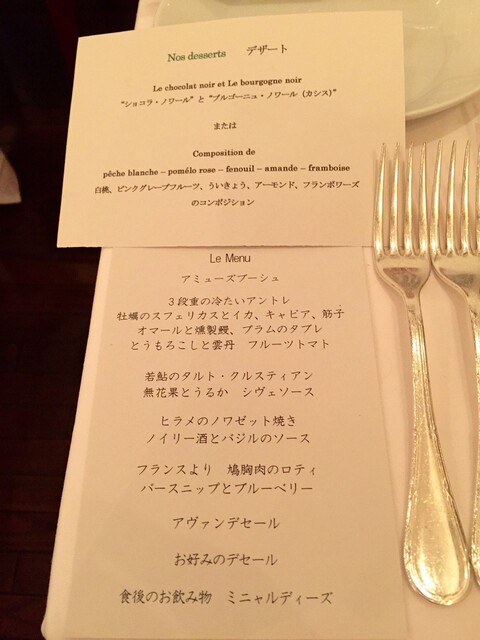 Nos desserts デザート
Le chocolat noir et Le bourgogne noir
“ショコラ・ノワール” と “ブルゴーニュ・ノワール (カシス)”
または
Composition de
pêche blanche – pomélo rose – fenouil – amande – framboise
白桃、ピンクグレープフルーツ、ういきょう、アーモンド、フランボワーズ
のコンポジション
Le Menu
アミューズブーシュ
３段重の冷たいアントレ
牡蠣のスフェリカスとイカ、キャビア、筋子
オマールと燻製鰻、プラムのタブレ
とうもろこしと雲丹　フルーツトマト
若鮎のタルト・クルスティアン
無花果とうるか　シヴェソース
ヒラメのノワゼット焼き
ノイリー酒とバジルのソース
フランスより　鳩胸肉のロティ
パースニップとブルーベリー
アヴァンデセール
お好みのデセール
食後のお飲み物　ミニャルディーズ